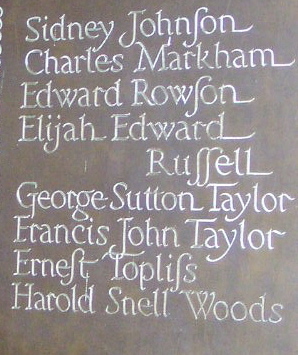 Sidney Johnſon
Charles Markham
Edward Rowſon
Elijah Edward
Ruſſell
George Sutton Taylor
Francis John Taylor
Erneſt Topliſs
Harold Snell Woods